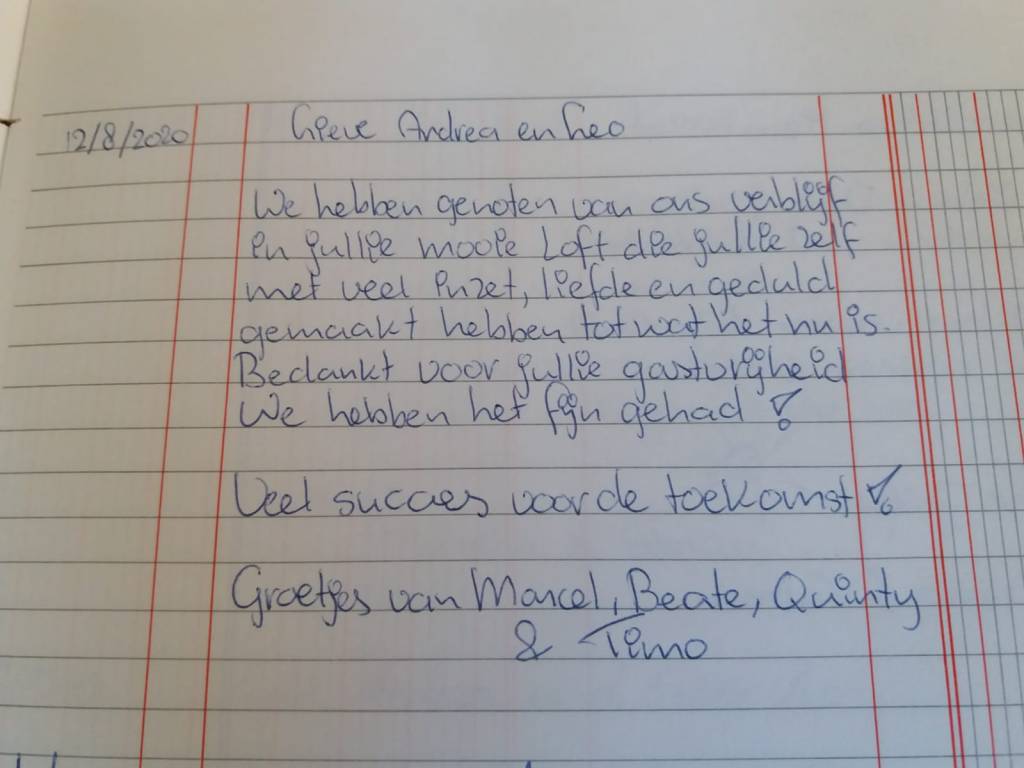 12/8/2020 Lieve Andrea en Leo
We hebben genoten van ons verblijf
in jullie mooie Loft die jullie zelf
met veel inzet, liefde en geduld
gemaakt hebben tot wat het nu is.
Bedankt voor jullie gastvrijheid
We hebben het fijn gehad !
Veel succes voor de toekomst !
Groetjes van Marcel, Beate, Quinty
& Timo